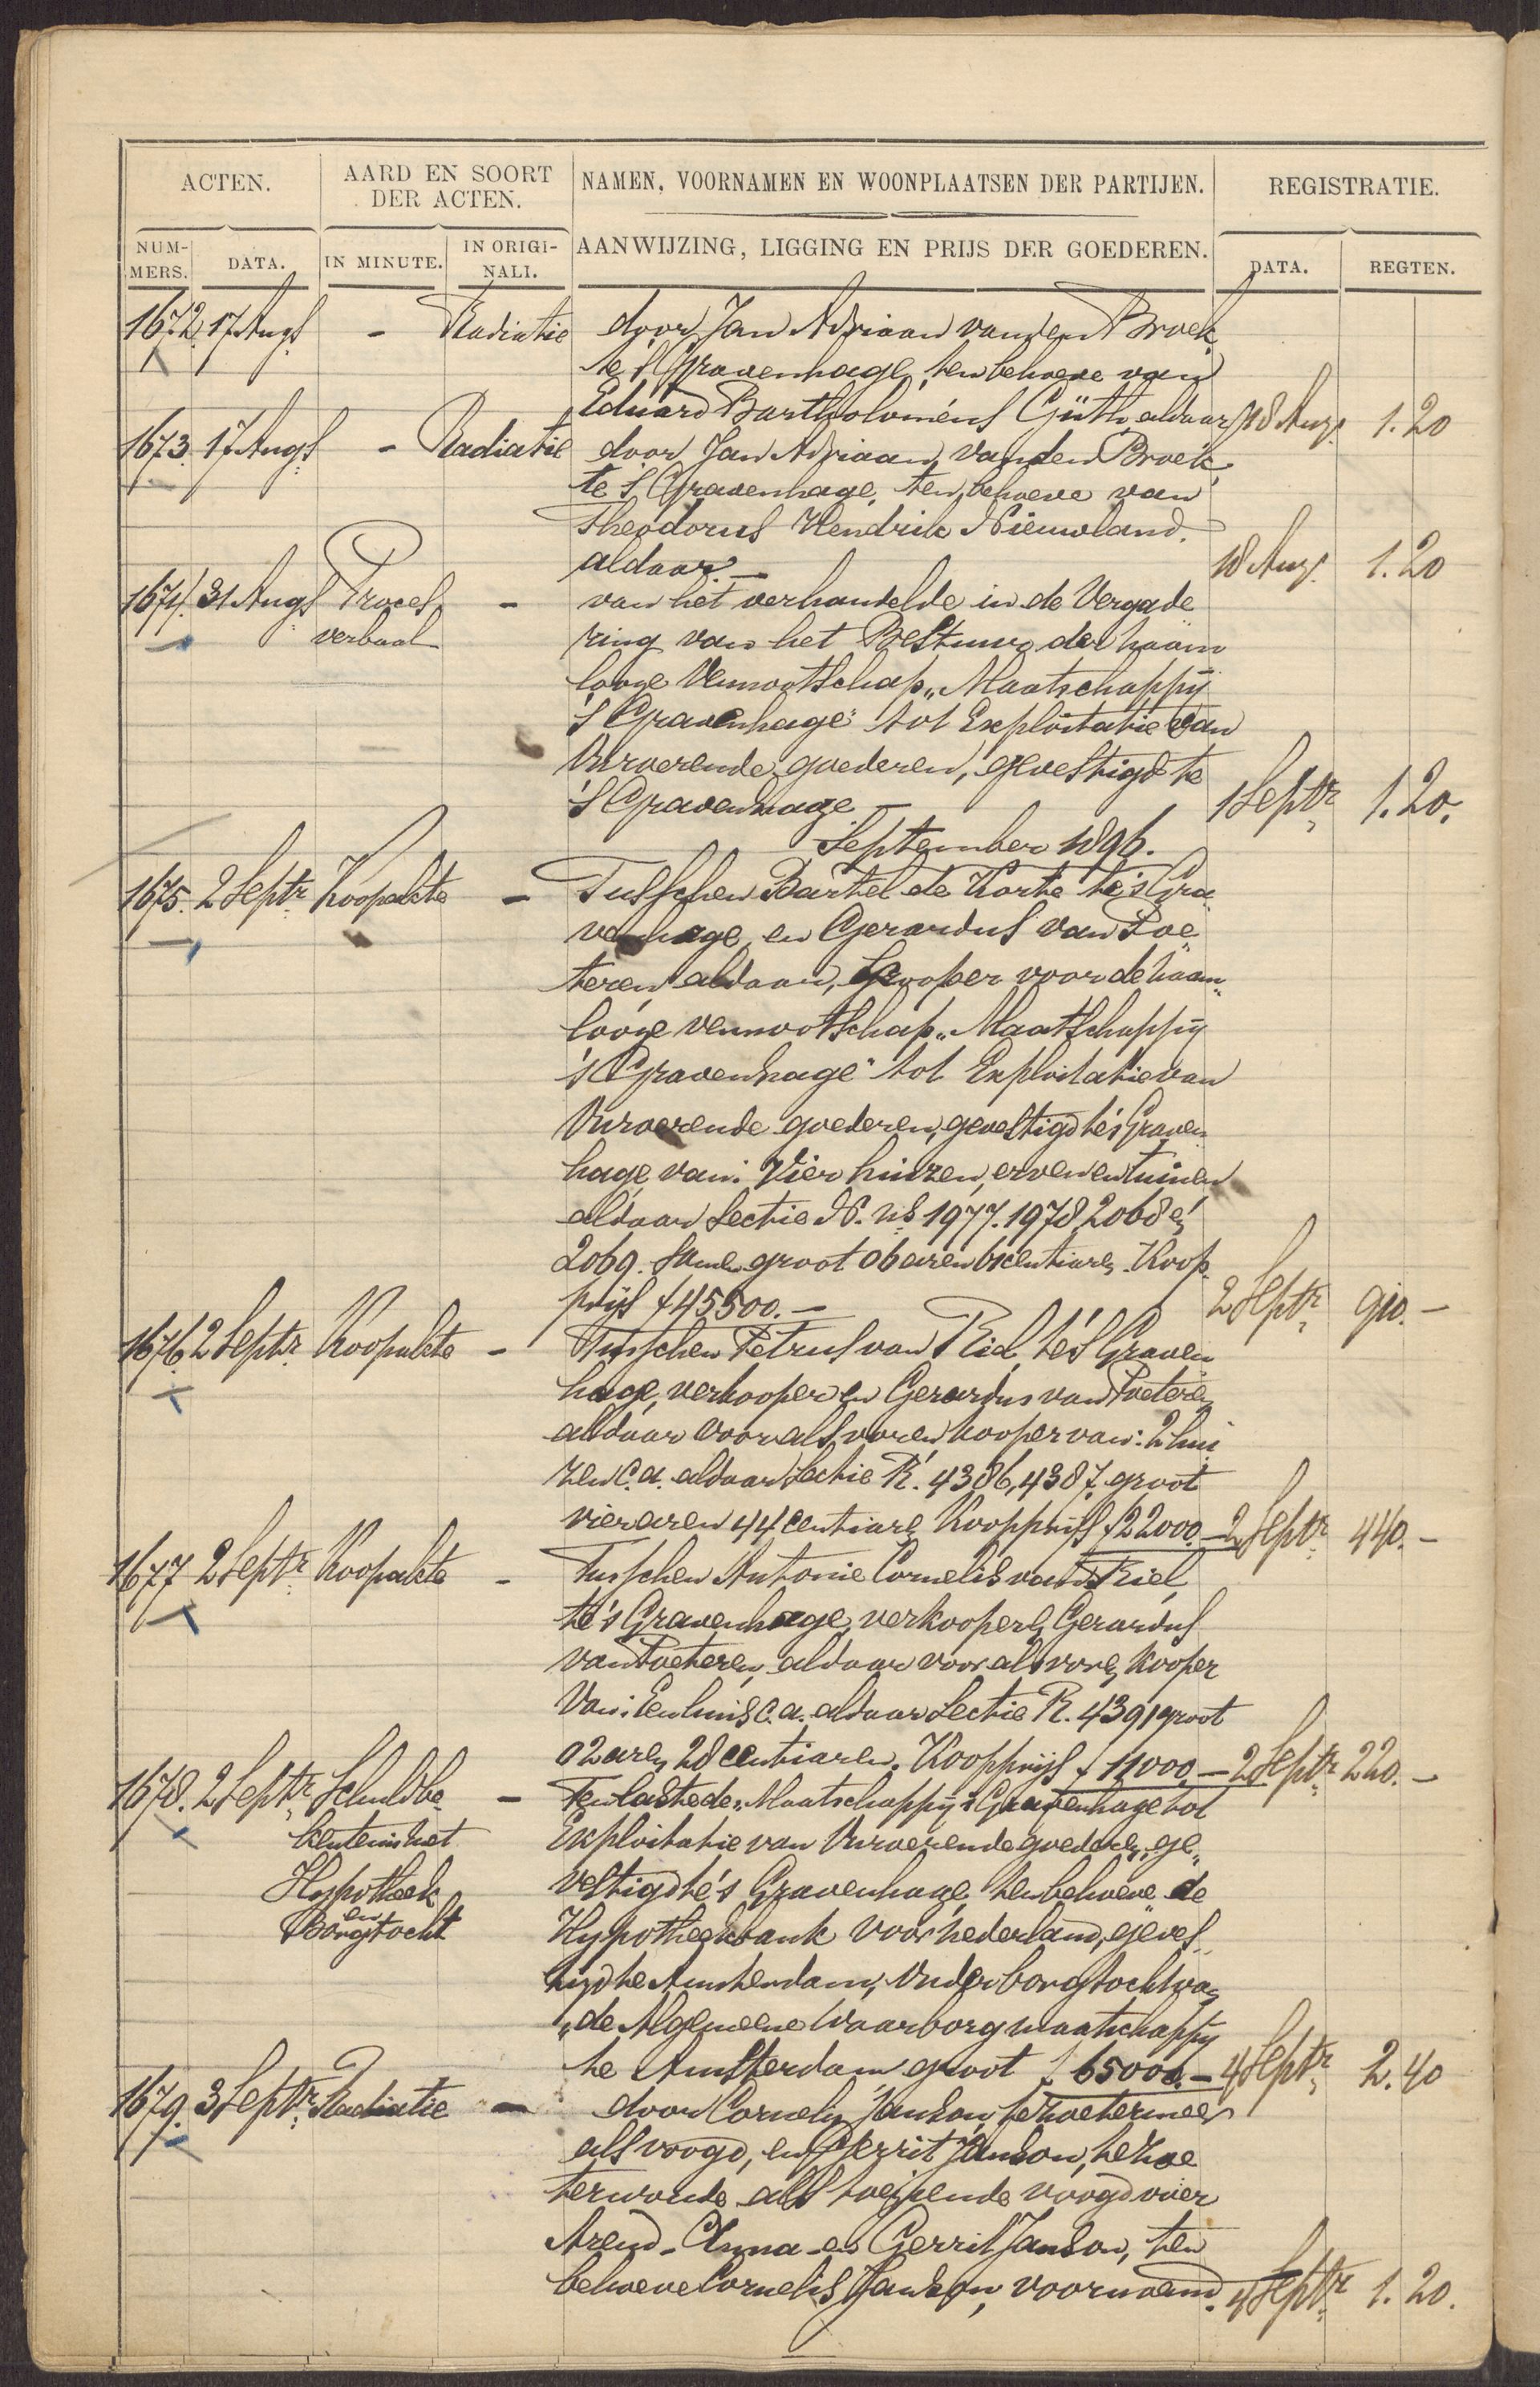 ACTEN. AARD EN SOORT DER ACTEN. NAMEN, VOORNAMEN EN WOONPLAATSEN DER PARTIJEN. REGISTRATIE.
NUM-MERS. DATA. IN MINUTE. IN ORIGI-NALI. AANWIJZING, LIGGING EN PRIJS DER GOEDEREN. DATA. REGTEN.
1672 17 Augs - Radiatie door Jan Adriaan van den Broek
te 's Gravenhage, ten behoeve van
Eduard Bartholoméus Güth aldaar 18 Aug. 1.20
1673. 17 Augs - Radiatie door Jan Adriaan van den Broek
te 's Gravenhage, ten behoeve van
Theodorus Hendrik Nieuwland.
aldaar. — 18 Aug. 1.20
1674. 31 Augs Proces - van het verhandelde in de Vergade
verbaal ring van het Bestuur der naam
looze Vennootschap „Maatschappij
's Gravenhage" tot Exploitatie van
Onroerende goederen, gevestigd te
's Gravenhage. 1 Septr 1.20.
September 1896.
1675. 2 Septr Koopakte - Tusschen Bartel de Korte te 's Gra
venhage, en Gerardus van Poe
teren aldaar, Kooper voor de naam„
looze vennootschap „Maatschappij
's Gravenhage" tot Exploitatie van
Onroerende goederen, gevestigd te 's Graven
hage, van: Vier huizen, erven en tuinen
aldaar Sectie N. ns 1977. 1978 2068 en
2069. Samen groot 06 aren 61 centiaren. Koop
prijs f 45500.— 2 Septr 910.—
1676. 2 Septr Koopakte - Tusschen Petrus van Riel, te 's Graven
hage, verkooper en Gerardus van Poeteren
aldaar voor als voren Kooper van: 2 hui
zen c.a. aldaar Sectie R. 4386, 4387. groot
vier aren 44 centiaren Koopprijs f 22000.— 2 Septr 440.—
1677 2 Septr Koopakte - Tusschen Antonie Cornelis van Riel,
te 's Gravenhage, verkooper en Gerardus
van Poeteren, aldaar voor als voren, Kooper
Van: Een huis c.a. aldaar Sectie R. 4391 groot
02 aren 28 centiaren. Koopprijs f 11000.— 2 Septr 220.—
1678. 2 Septr Schuldbe- - Ten laste de „Maatschappij 's Gravenhage tot
kentenis met Exploitatie van Onroerende goederen, ge„
Hypotheek vestigd te 's Gravenhage, ten behoeve de
en Borgtocht Hypotheekbank voor Nederland, geves„
tigd te Amsterdam, Onder borgtocht van
„de Algemeene Waarborgmaatschappij
te Amsterdam groot f 65000.— 4 Septr 2.40
1679. 3 Septr Radiatie — door Cornelis Janson, te Zoetermeer
als voogd, en Gerrit Janson, te Zoe
terwoude als toeziende voogd over
Arend - Anna - en Gerrit Janson, ten
behoeve Cornelis Janson, voornoemd. 4 Septr 1.20.